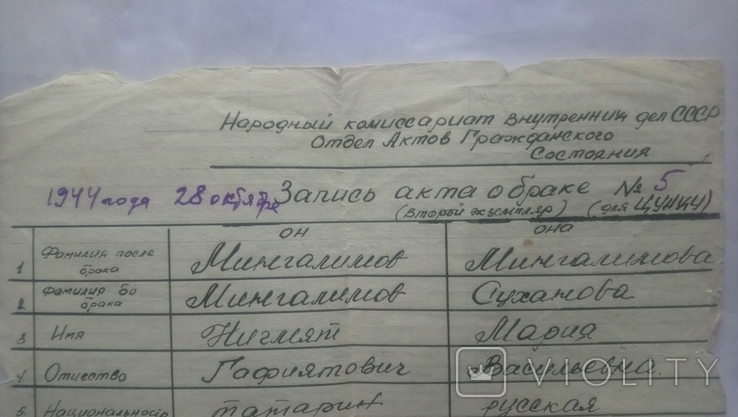 Народный комиссариат внутренних дел СССР
Отдел Актов Гражданского
Состояния
1944 года 28 октября Запись акта о браке № 5
(второй экземпляр) (для ЦУНХУ)
он она
1 Фамилия после брака Мингалимов Мингалимова
2 Фамилия до брака Мингалимов Суханова
3 Имя Нигмят Мария
4 Отчество Гафиятович Васильевна
5. Национальность татарин русская
VIOLITY